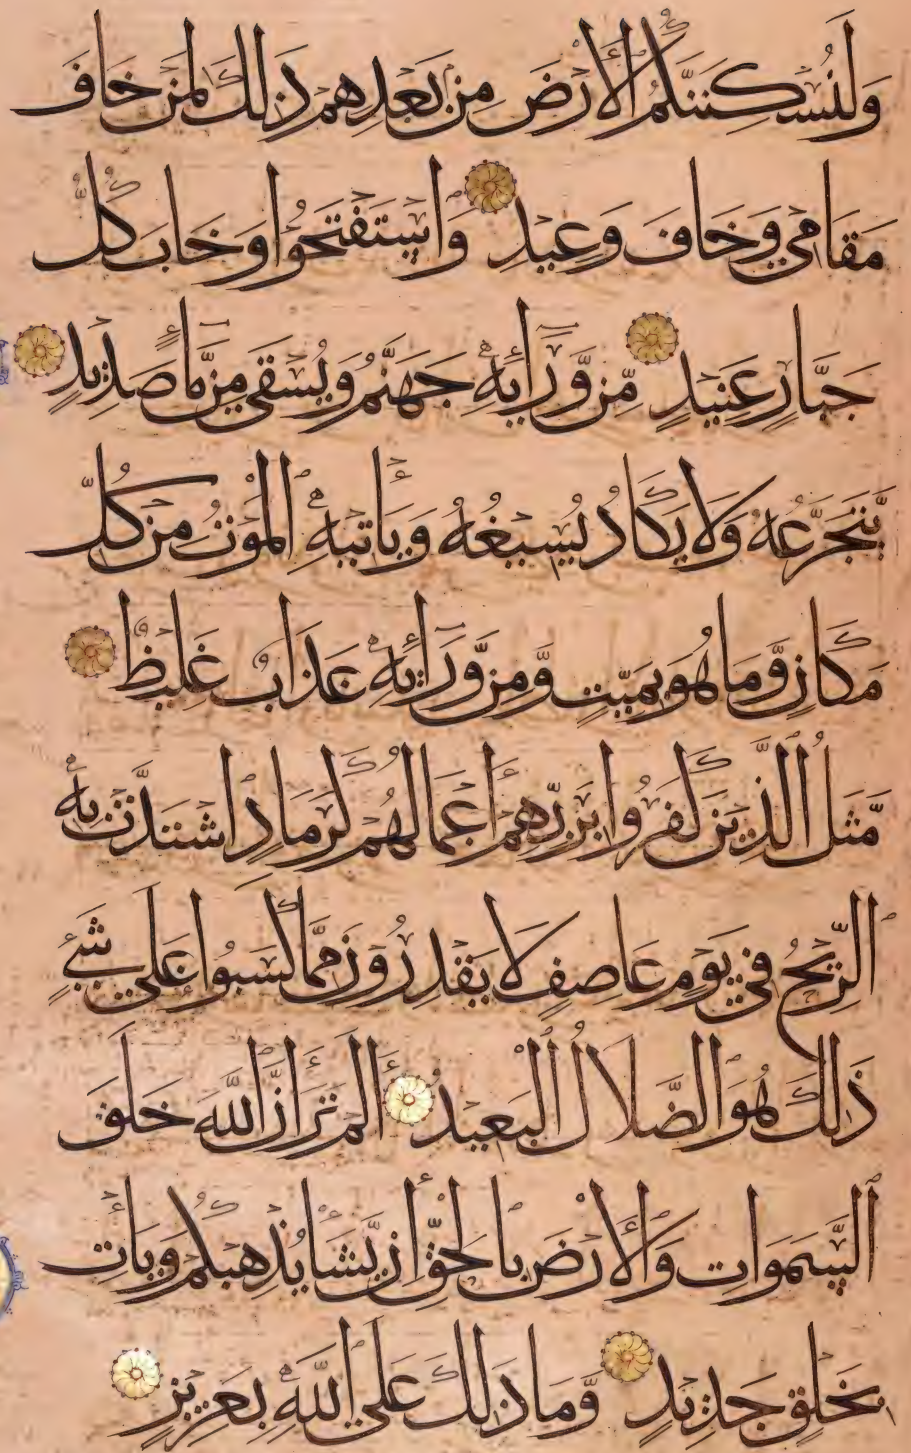 وَلَنُسْكِنَنَّكُمُ الْأَرْضَ مِنْ بَعْدِهِمْ ذَلِكَ لِمَنْ خَافَ
مَقَامِي وَخَافَ وَعِيدِ وَاسْتَفْتَحُوا وَخَابَ كُلُّ
جَبَّارٍ عَنِيدٍ مِّنْ وَّرَائِهِ جَهَنَّمُ وَيُسْقَى مِنْ مَّاءٍ صَدِيدٍ
يَّتَجَرَّعُهُ وَلَا يَكَادُ يُسِيغُهُ وَيَأْتِيهِ الْمَوْتُ مِنْ كُلِّ
مَكَانٍ وَّمَا هُوَ بِمَيِّتٍ وَّمِنْ وَّرَائِهِ عَذَابٌ غَلِيظٌ
مَّثَلُ الَّذِينَ كَفَرُوا بِرَبِّهِمْ أَعْمَالُهُمْ كَرَمَادٍ اشْتَدَّتْ بِهِ
الرِّيحُ فِي يَوْمٍ عَاصِفٍ لَا يَقْدِرُونَ مِمَّا كَسَبُوا عَلَى شَيْءٍ
ذَلِكَ هُوَ الضَّلَالُ الْبَعِيدُ أَلَمْ تَرَ أَنَّ اللَّهَ خَلَقَ
السَّمَوَاتِ وَالْأَرْضَ بِالْحَقِّ أَنْ يَّشَأْ يُذْهِبْكُمْ وَيَأْتِ
بِخَلْقٍ جَدِيدٍ وَّمَا ذَلِكَ عَلَى اللَّهِ بِعَزِيزٍ